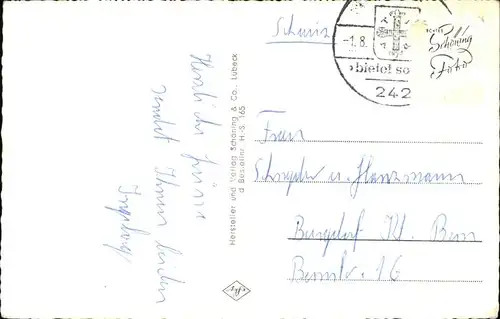 Herzliche Grüsse
sendet Ihnen beiden
Ingeborg
Hersteller und Verlag Schöning & Co., Lübeck
Bestellnr. H.-S. 165
Schweiz
-1.8.
bietet so
242
Schöning
Foto
Frau
Schnyder u. Hanzmann
Burgdorf Kt. Bern
Bernstr. 16